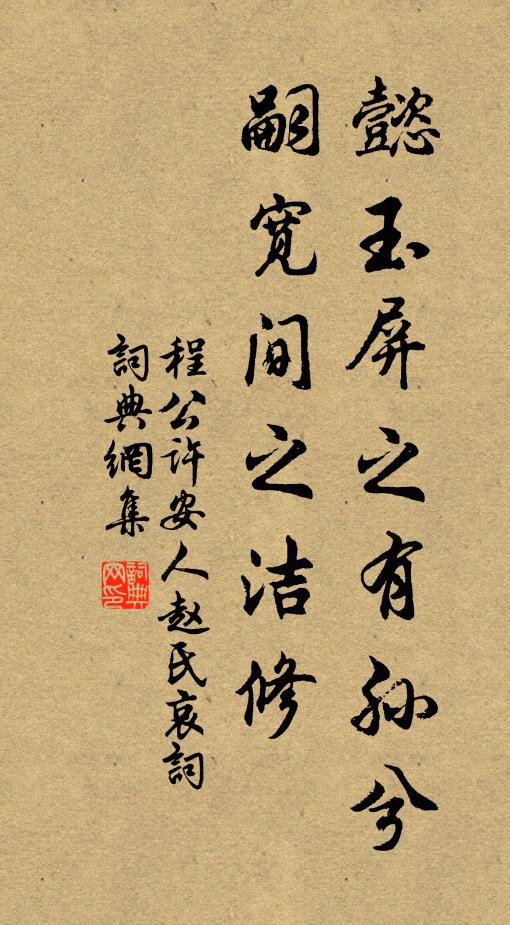 懿玉屏之有孙兮
嗣宽间之洁修
程公许安人赵氏哀詞
詞典網集
詞典网印